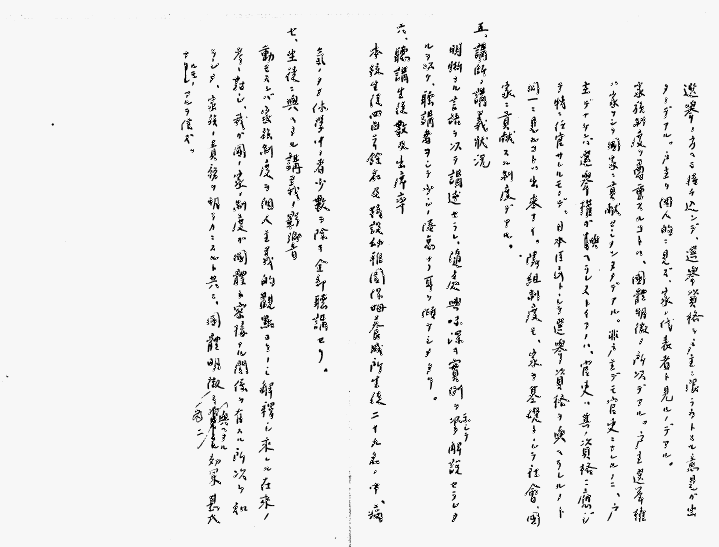 選挙ノ方ヘモ採リ込ンデ、選挙資格ヲ戸主ニ限ラウトスル意見ガ出
タノデアル。戸主ヲ個人的ニ見ズ、家ノ代表者ト見ルノデアル。
家族制度ヲ尊重スルコトハ、國體明徴ノ所以デアル。戸主選挙権
ハ家トシテ國家ニ貢献セシメンタメデアル。非戸主デモ官吏ニナレルノニ、戸
主デナケレバ選挙権ガ與ヘラレヌトイフノハ、官吏ハ其ノ資格ニ應ジ
ヲ特ニ任官サレルモノデ、日本臣民トシテ選挙資格ヲ與ヘラレルノト
同一ニ見ルコトハ出来ナイ。隣組制度モ、家ヲ基礎トシテ社會、國
家ニ貢献スル制度デアル。
五、講師ノ講義状況
明晰ナル言語ヲ以テ講述セラレ、随處興味深キ實例ヲ示シテ解説セラレタ
ルヲ以テ、聴講者ヲシテ少シノ倦怠ナク耳ヲ傾ケシメタリ。
六、聴講生徒数及出席率
本校生徒四百 餘名及機設幼稚園保姆養成所生徒二十九名ノ中、病
氣ノタメ休學中ノ者少数ヲ除キ全部聴講セリ。
七、生徒ニ與ヘタル講義ノ影響
動モスレバ家族制度ヲ個人主義的觀點ヨリノミ解釋シ来レル在来ノ
考ニ對シ、我ガ國ノ家ノ制度ガ國體ト密接ナル関係ヲ有スル所以ヲ知
ラシメ、家族ノ責務ヲ明ラカニスルト共ニ、國體明徴ニ與ヘタル効果甚大
ナルモノアルヲ信ズ。